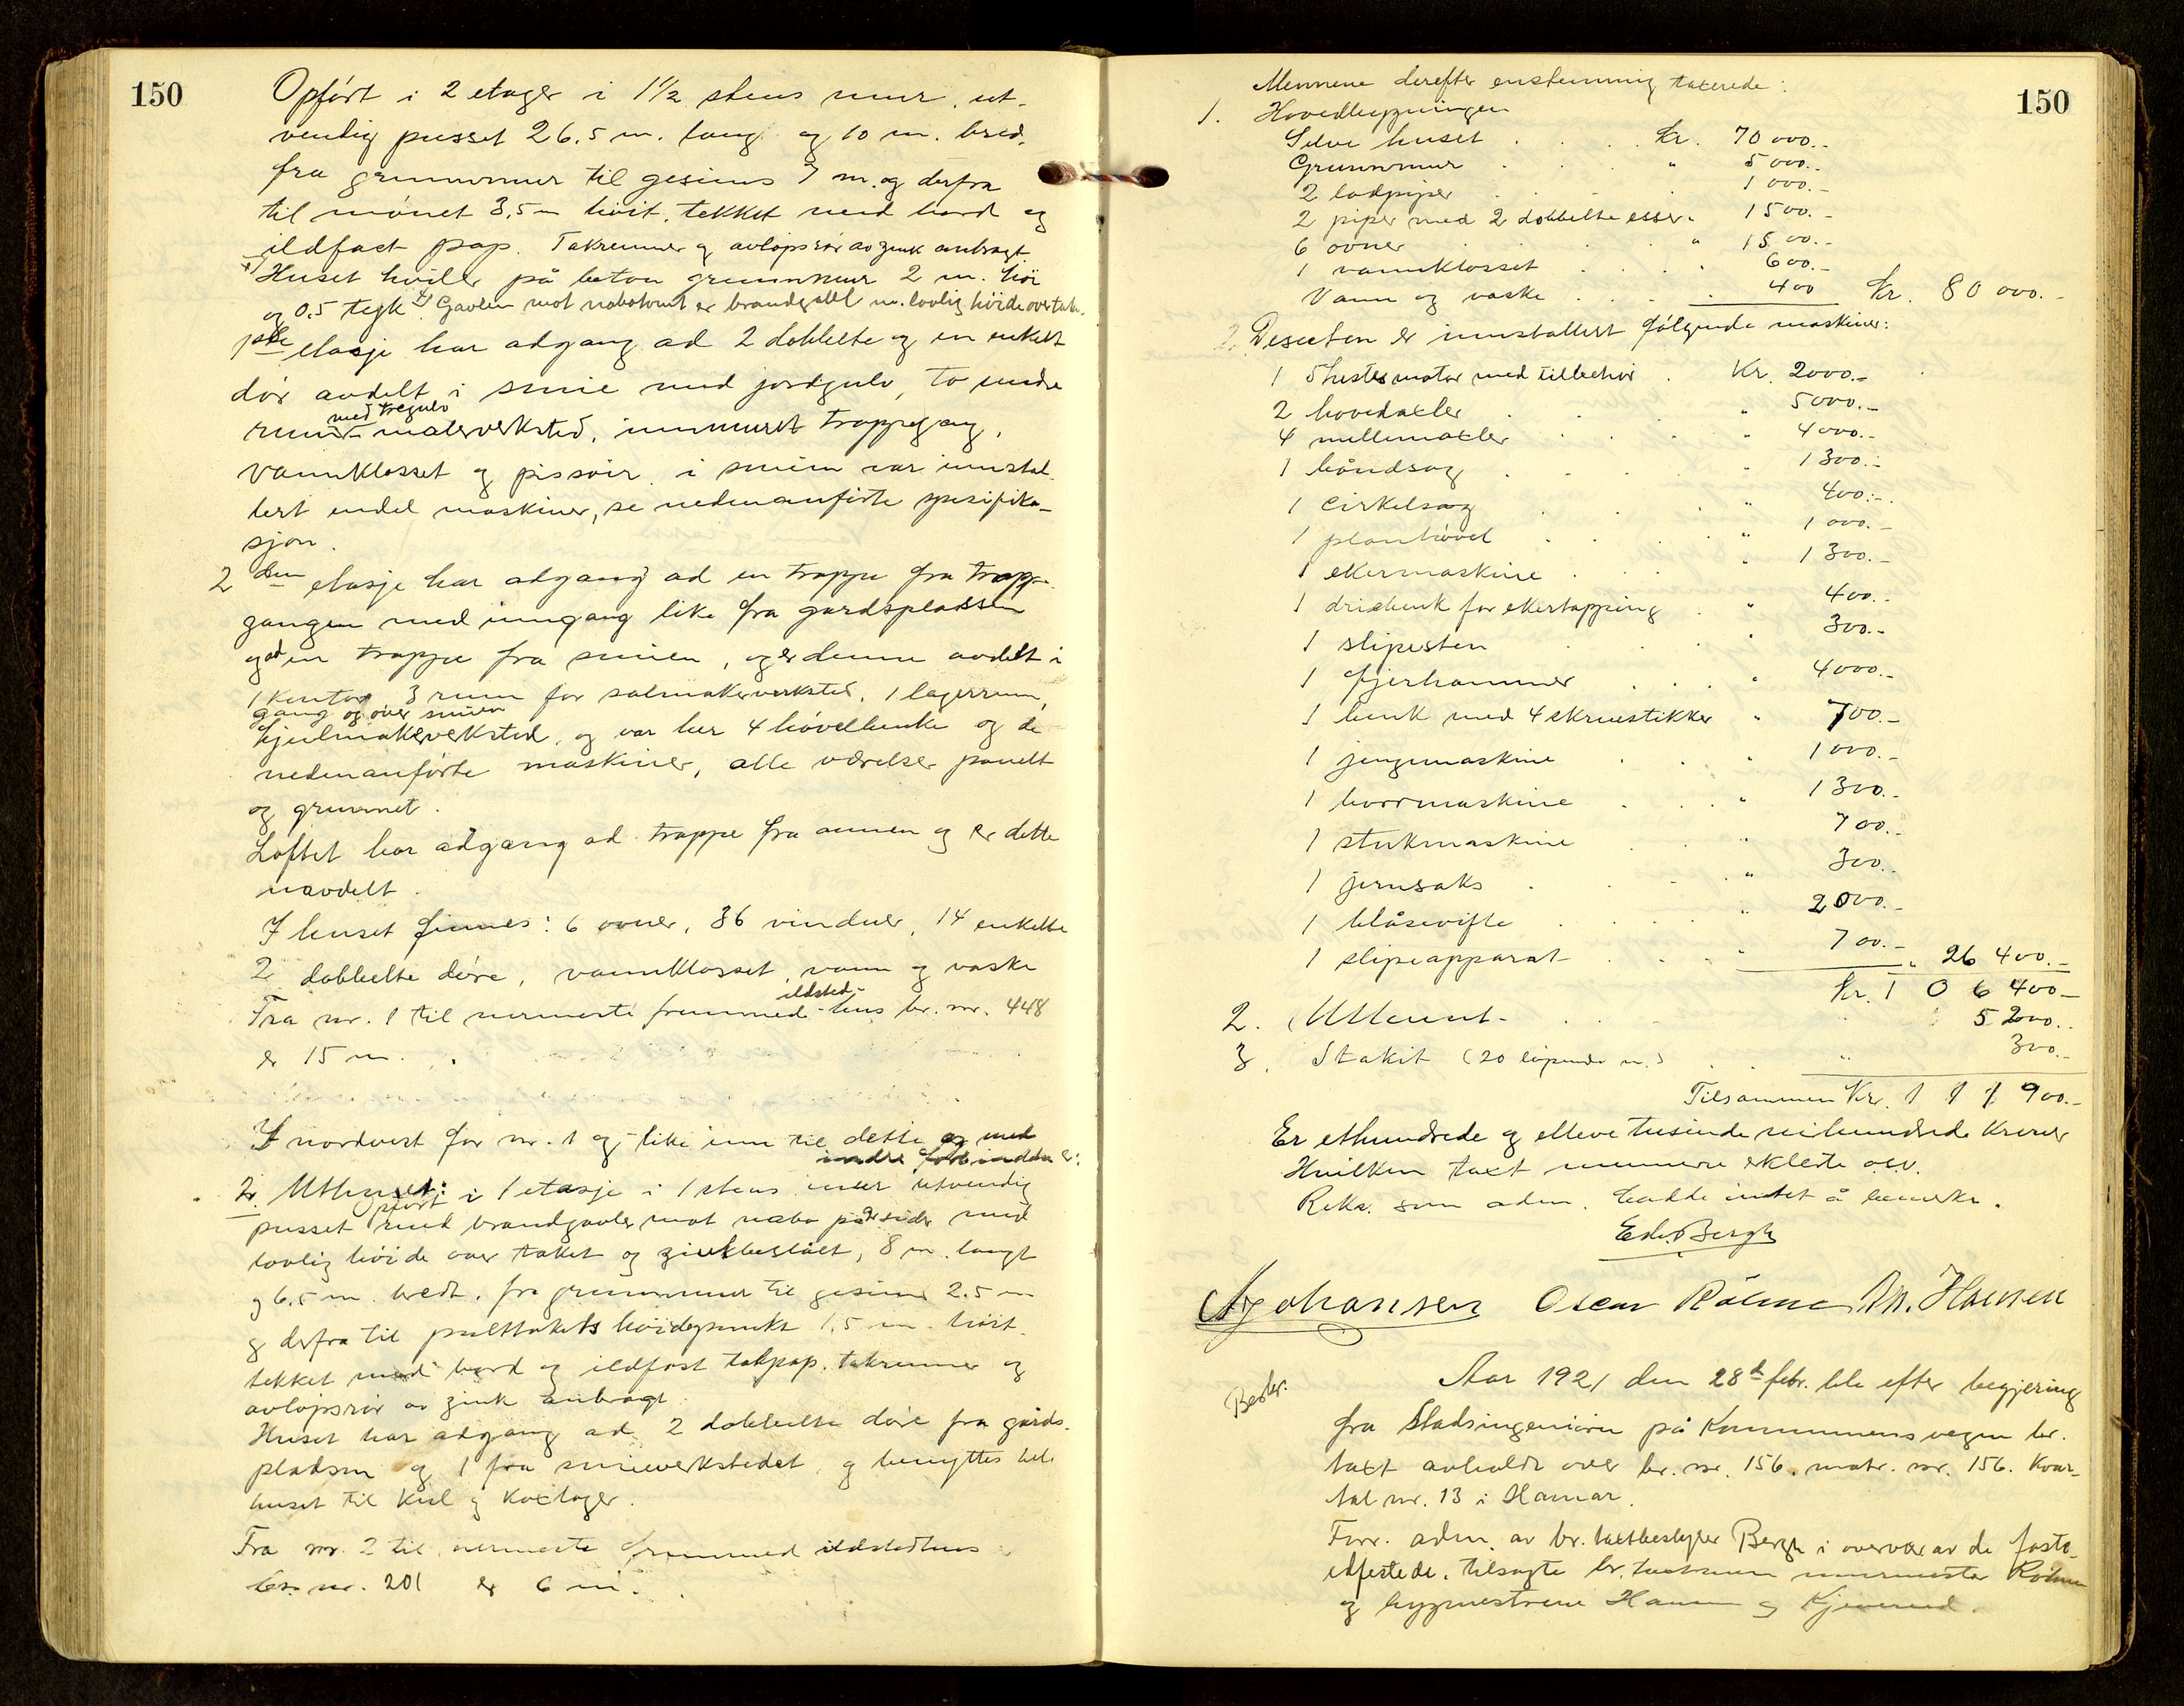 150
Opført i 2 etager i 1½ stens mur, ut-
vendig pusset 26.5 m. lang og 10 m. bred,
fra grunnmur til gesims 7 m. og derfra
til mønet 3,5 m høit, tekket med bord og
ildfast pap. Takrenner og avløpsrør av zink anbragt
Huset hviler på beton grunnmur 2 m. høi
og 0.5 tyk. Gavlen mot nabotomt er brandgavl m. lovlig høide over tak.
1ste etasje har adgang ad 2 dobbelte og en enkelt
dør avdelt i smie med jordgulv, to andre
rum med tregulv malerverksted, innmuret trappegang,
vannklosset og pissoir, i smien var instal-
lert endel maskiner, se nedenanførte spesifika-
sjon.
2den etasje har adgang ad en trappe fra trap-
gangen med inngang like fra gardspladssen
og ad en trappe fra smien, og er denne avdelt i
1 kontor, 3 rum for salmakerverksted, 1 lagerrum,
gang og over smien
hjulmakerverksted, og var her 4 høvelbenke og de
nedenanførte maskiner, alle værelser panelt
og grunnet.
Loftet har adgang ad trappe fra annen og er dette
uavdelt.
I huset finnes: 6 ovner, 36 vinduer, 14 enkelte
2 dobbelte døre, vannklosset, vann og vaske
Fra nr. 1 til nermeste fremmed ildsted-hus br. nr. 448
er 15 m.
I nordvest for nr. 1 og like inn til dette og med
indre forbindelse er:
2. Uthuset:
opført i 1 etasje i 1 stens mur utvendig
pusset med brandgavler mot nabo på 2 sider med
lovlig høide over taket og zinkbeslått, 8 m. langt
og 6.5 m. bredt, fra grunnmur til gesims 2.5 m
og derfra til pulttakets høidepunkt 1,5 m. høit.
tekket med bord og ildfast takpap. takrenner og
avløpsrør av zink anbragt.
Huset har adgang ad 2 dobbelte døre fra gårds-
pladsen og 1 fra smieverkstedet, og benyttes hele
huset til kul og kokslager.
Fra nr. 2 til nermeste fremmed ildstedhus
br. nr. 201 er 6 m.
150
Mennene derefter enstemmig taxerede:
1. Hovedbygningen
Selve huset . . . kr. 70 000.-
Grunnmur . . . " 5 000.-
2 lodpiper . . . 1 000.-
2 piper med 2 dobbelte esser " 1 500.-
6 ovner . . . " 1500.-
1 vannklosset . . . " 600.-
Vann og vaske . . . 400 kr. 80 000.-
2. Desuten er innstallert følgende maskiner:
1 5 hestes motor med tilbehør . Kr. 2000.-
2 hovedaxler . . " 5000.-
4 mellemaxler . . " 4000.-
1 båndsag . . " 1300.-
1 cirkelsag . . " 400.-
1 planhøvel . . " 1000.-
1 ekermaskine . . 1300.-
1 dreiebenk for ekertapping . " 400.-
1 slipesten . . " 300.-
1 fjerhammer . . " 4000.-
1 benk med 4 skruestikker " 700.-
1 jengemaskine . . " 1000.-
1 borrmaskine . . " 1300.-
1 stukmaskine . . " 700.-
1 jernsaks . . " 300.-
1 blåsevifte . . " 2000.-
1 slipeapparat . . " 700.- " 26 400.-
Kr. 106 400.-
2. Uthuset . . 5 200.-
3. Stakit (20 løpende m.) . . " 300.-
Tilsammen Kr. 111 900.-
Er ethundrede og elleve tusinde nihundrede kroner
Hvilken taxt mennene erklerte osv.
Rekv. som adm. hadde intet å bemerke.
Edv. Bergh
A Johansen Oscar Rølme M. Hansen
Besler.
Aar 1921 den 28d febr. ble efter begjering
fra Stadsingeniøren på kommunens vegne br.
taxt avholdt over br. nr. 156. matr. nr. 156. Kvar-
tal nr. 13 i Hamar.
Forr. adm. av br. taxtbestyrer Bergh i overvær av de faste
edfestede, tilsagte br. taxtmenn murmester Rølme
og bygmestrene Hansen og Kjeverud.